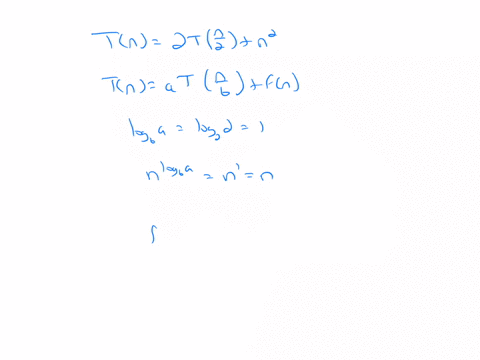 T(n) = 2T(n/2) + n²
T(n) = aT(n/b) + f(n)
log_b a = log_2 2 = 1
n^{log_b a} = n^1 = n
f